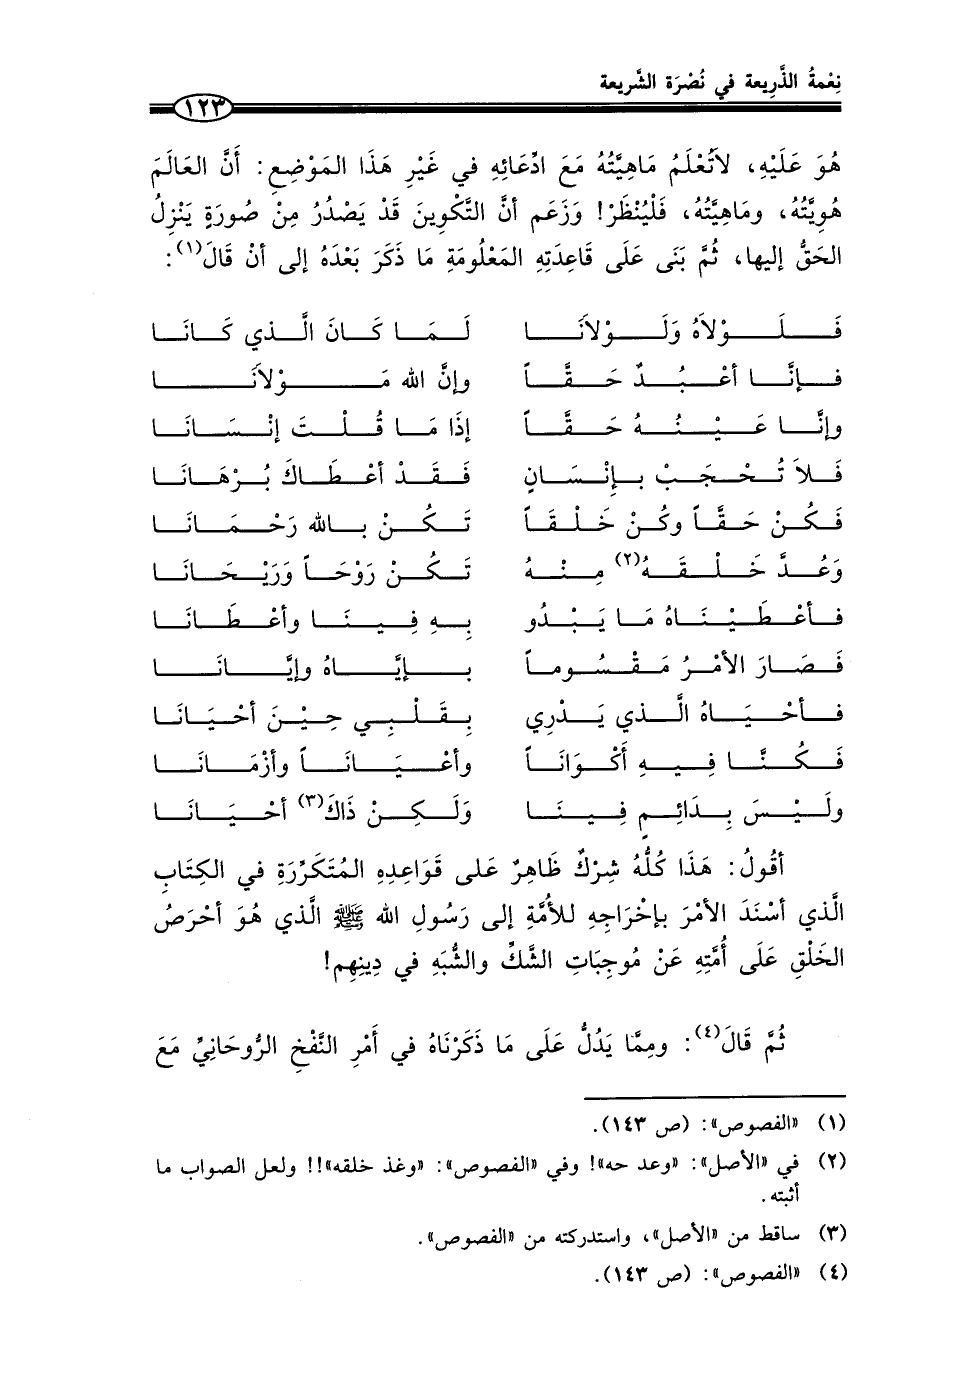 نِعْمةُ الذَّرِيعة في نُصْرَة الشَّرِيعة
١٢٣
هُوَ عَلَيْهِ، لاَتُعْلَمُ مَاهِيَّتُهُ مَعَ ادِّعَائِهِ في غَيْرِ هَذَا المَوْضِعِ: أنَّ العَالَمَ
هُويَّتُهُ، ومَاهِيَّتُهُ، فَلْيُنْظَرْ! وَزَعَم أنَّ التَّكْوِينَ قَدْ يَصْدُرُ مِنْ صُورَةٍ يَنْزِلُ
الحَقُّ إليها، ثُمَّ بَنَى عَلَى قَاعِدَتِهِ المَعْلُومَةِ مَا ذَكَرَ بَعْدَهُ إلى أنْ قَالَ(١):
فَلَوْلاَهُ وَلَوْلاَنَا لَمَا كَانَ الَّذي كَانَا
فإنَّا أعْبُدٌ حَقَّاً وإنَّ الله مَوْلاَنَا
وإنَّا عَيْنُهُ حَقَّاً إذَا مَا قُلْتَ إنْسَانَا
فَلاَ تُحْجَبْ بِإنْسَانٍ فَقَدْ أعْطَاكَ بُرْهَانَا
فَكُنْ حَقَّاً وكُنْ خَلْقَاً تَكُنْ بِالله رَحْمَانَا
وَعُدَّ خَلْقَهُ(٢) مِنْهُ تَكُنْ رَوْحَاً وَرَيْحَانَا
فأعْطَيْنَاهُ مَا يَبْدُو بِهِ فِينَا وأعْطَانَا
فَصَارَ الأمْرُ مَقْسُوماً بإيَّاهُ وإيَّانَا
فأحْيَاهُ الَّذي يَدْرِي بِقَلْبِي حِيْنَ أحْيَانَا
فَكُنَّا فِيهِ أكْوَانَاً وأعْيَانَاً وأزْمَانَا
ولَيْسَ بِدَائِمٍ فِينَا وَلَكِنْ ذَاكَ(٣) أحْيَانَا
أقُولُ: هَذَا كُلُّهُ شِرْكٌ ظَاهِرٌ عَلى قَوَاعِدِهِ المُتَكَرِّرَةِ في الكِتَابِ
الَّذي أسْنَدَ الأمْرَ بإخْرَاجِهِ للأمَّةِ إلى رَسُولِ الله ﷺ الَّذي هُوَ أحْرَصُ
الخَلْقِ عَلَى أُمَّتِهِ عَنْ مُوجِبَاتِ الشَّكِّ والشُّبَهِ في دِينِهِم!
ثُمَّ قَالَ(٤): ومِمَّا يَدُلُّ عَلَى مَا ذَكَرْنَاهُ في أَمْرِ النَّفْخِ الرُّوحَانِيِّ مَعَ
(١) «الفصوص»: (ص ١٤٣).
(٢) في «الأصل»: «وعد حه»! وفي «الفصوص»: «وغذ خلقه»!! ولعل الصواب ما
أثبته.
(٣) ساقط من «الأصل»، واستدركته من «الفصوص».
(٤) «الفصوص»: (ص ١٤٣).